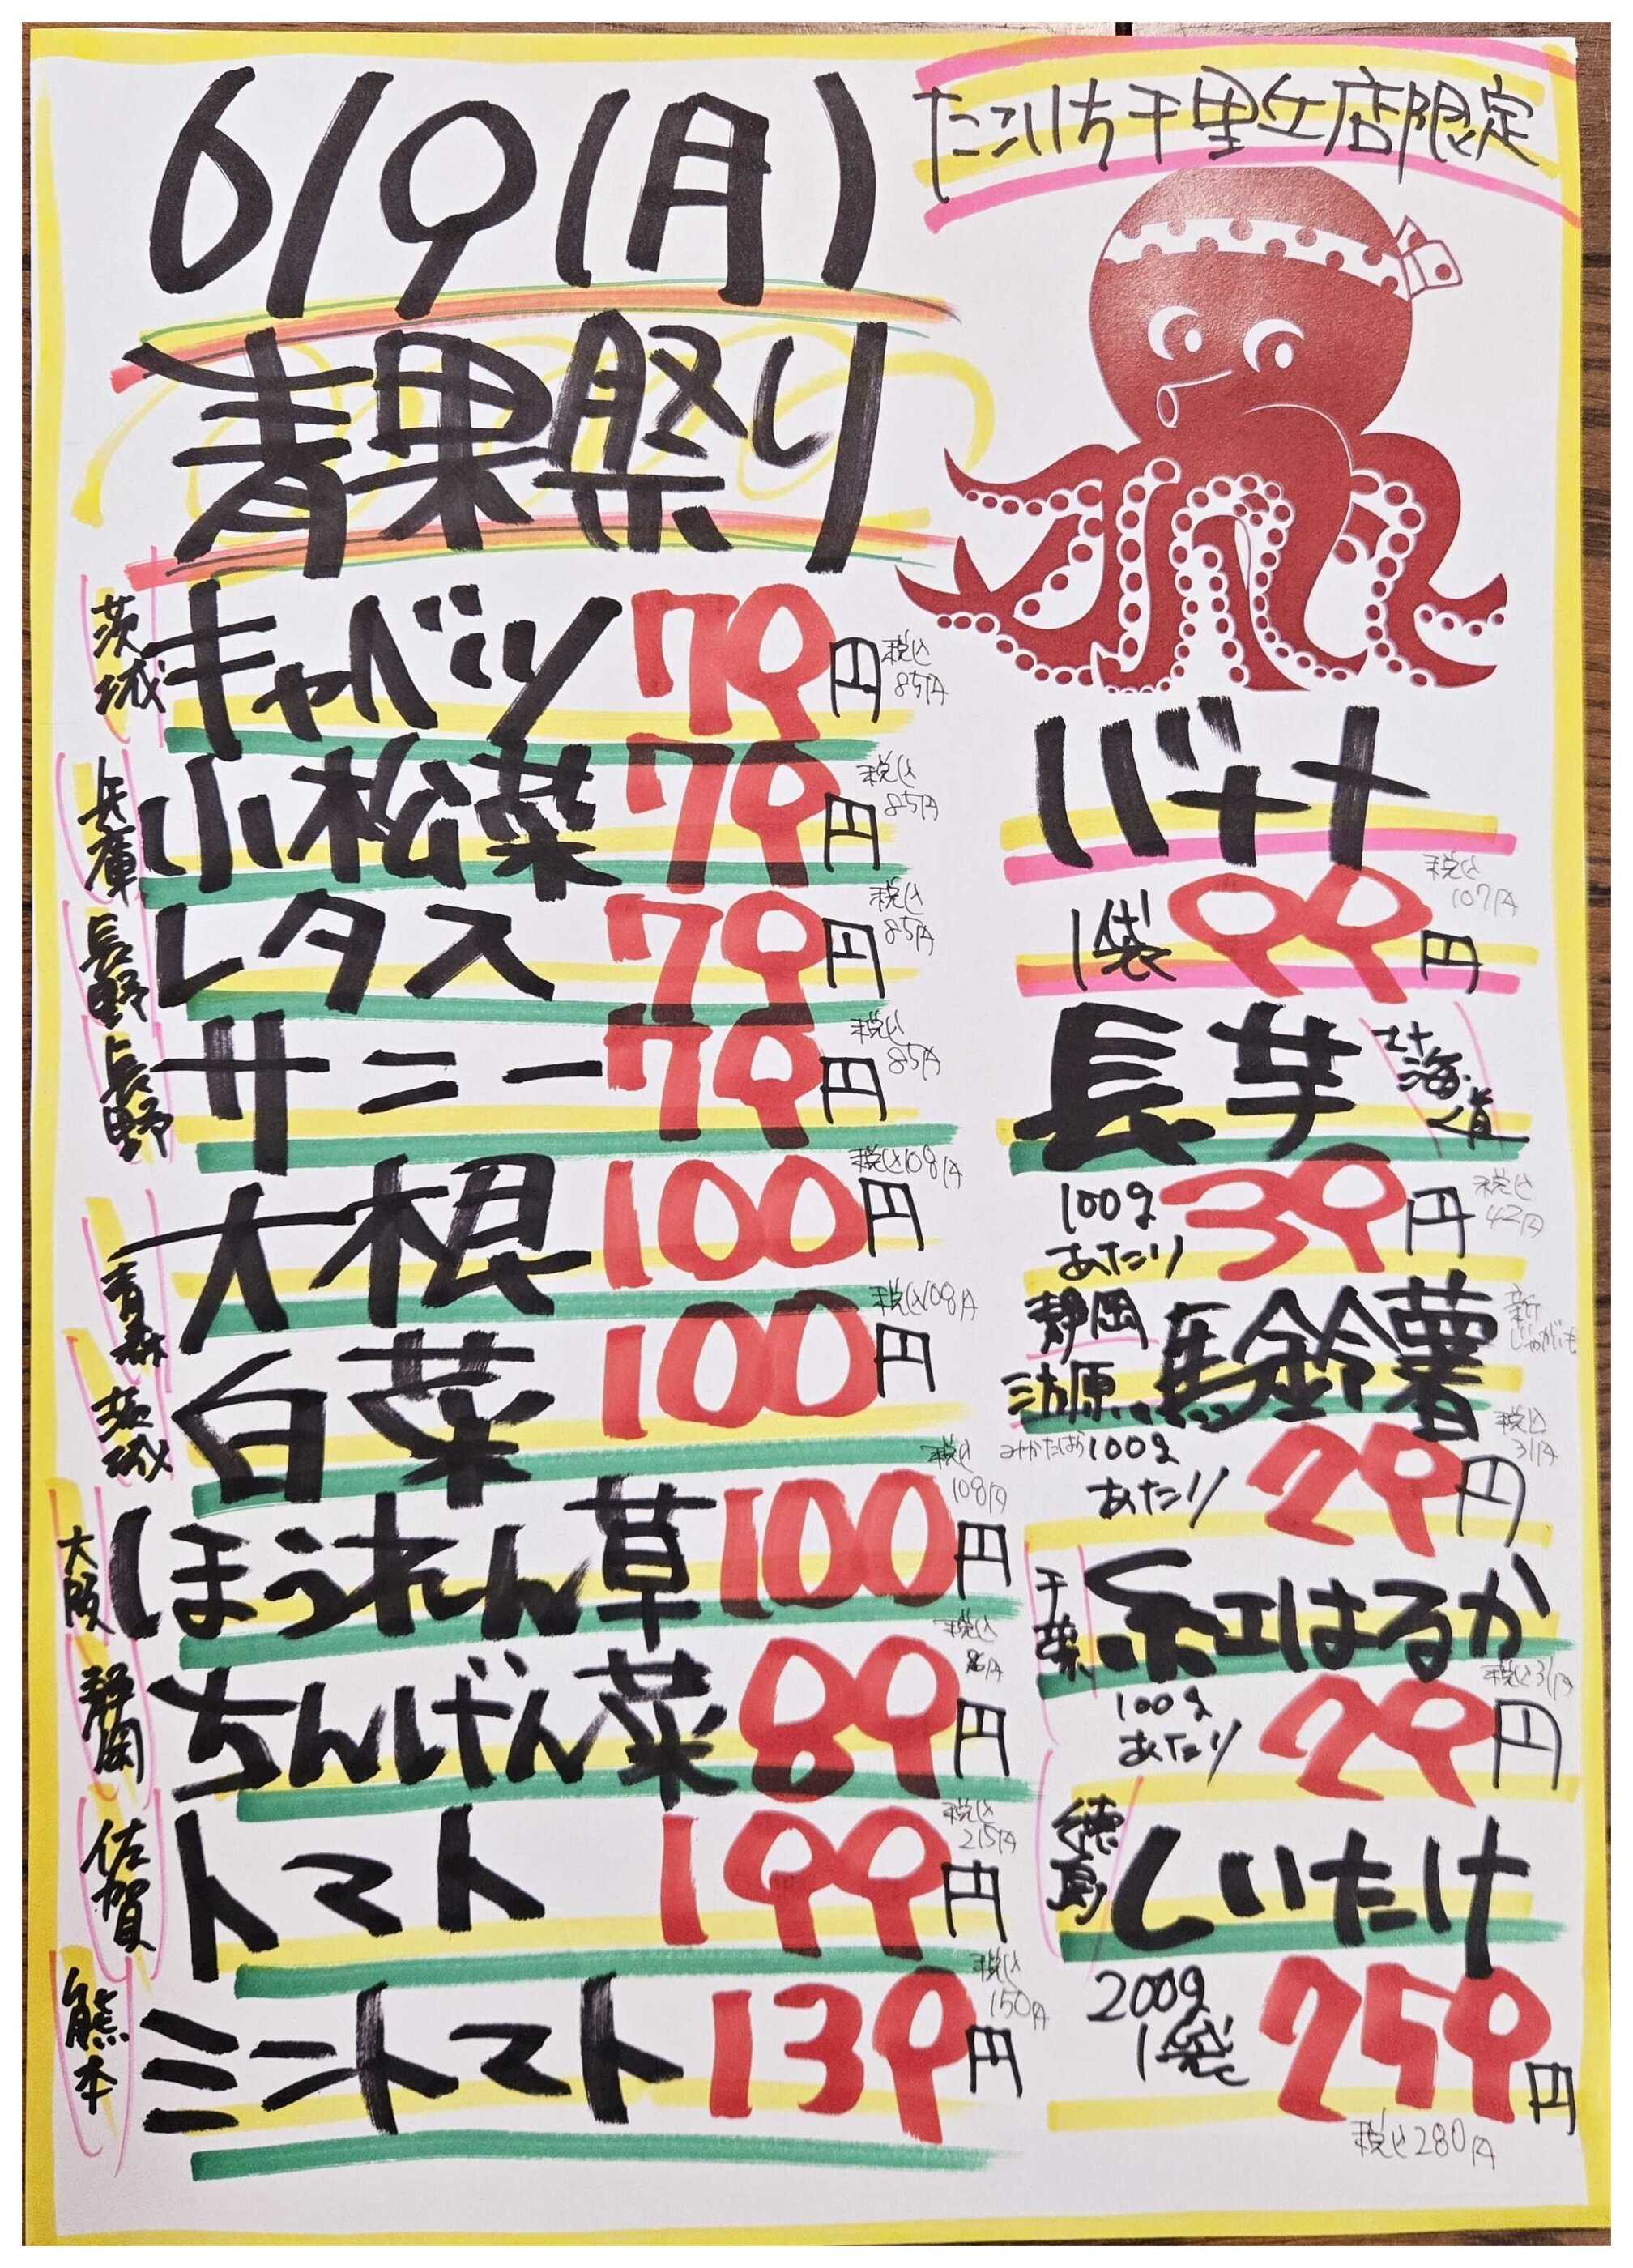 6/9(月)
青果祭り
たこいち千里丘店限定
茨城 キャベツ 79円 税込85円
兵庫 小松菜 79円 税込85円
長野 レタス 79円 税込85円
長野 サニー 79円 税込85円
青森 大根 100円 税込108円
茨城 白菜 100円 税込108円
大阪 ほうれん草 100円 税込108円
静岡 ちんげん菜 89円 税込
佐賀 トマト 199円 税込215円
熊本 ミニトマト 139円 税込150円
バナナ
1袋 99円 税込107円
長芋 北海道
100gあたり 39円 税込42円
静岡 三方原 馬鈴薯 新じゃがいも
みかたはら 100gあたり 29円 税込31円
千葉 紅はるか
100gあたり 29円 税込31円
徳島 しいたけ
200g 1袋 259円
税込280円